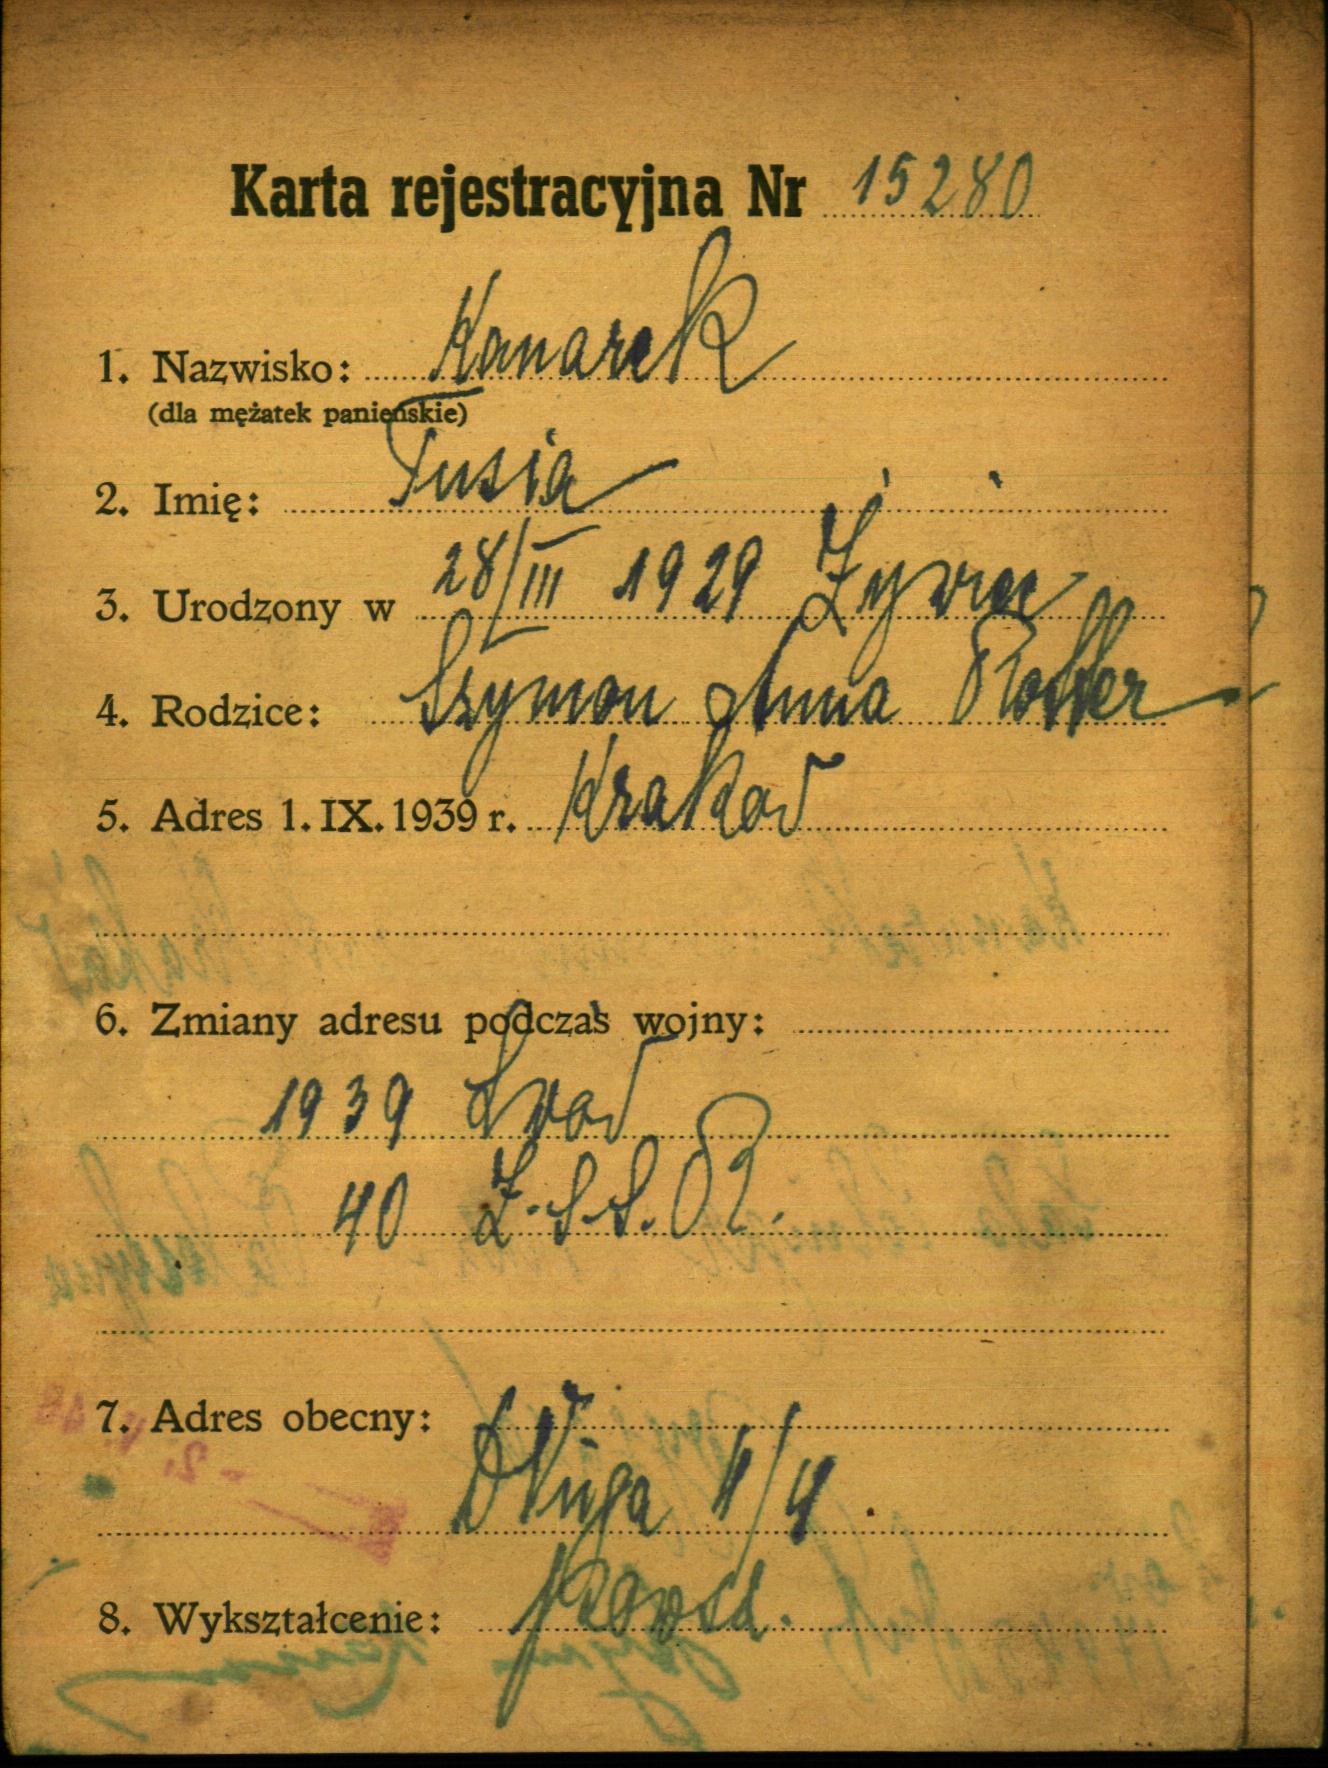 Karta rejestracyjna Nr 15280
1. Nazwisko: Kanarek
(dla mężatek panieńskie)
2. Imię: Tusia
3. Urodzony w 28/III 1929 Żywiec
4. Rodzice: Szymon Anna Rotter
5. Adres 1. IX. 1939 r. Kraków
6. Zmiany adresu podczas wojny:
1939 Lwów
40 Z.S.S.R.
7. Adres obecny:
Długa 4/4
8. Wykształcenie: powsz.